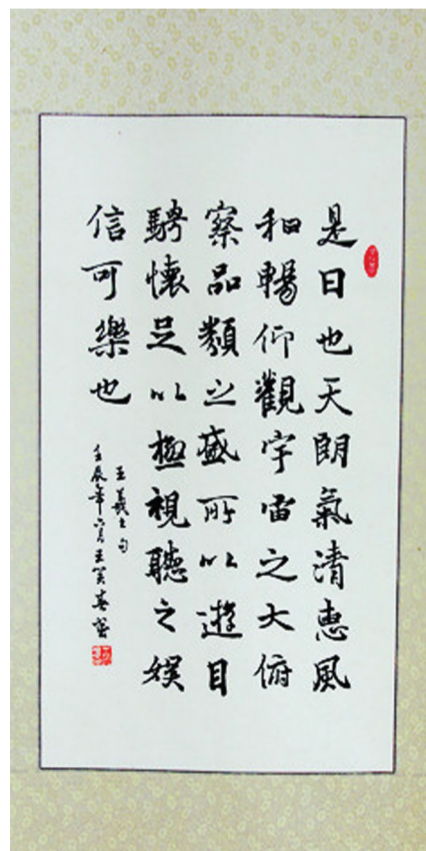 是日也天朗氣清惠風
和暢仰觀宇宙之大俯
察品類之盛所以遊目
騁懷足以極視聽之娛
信可樂也
王羲之句
壬辰年六月王